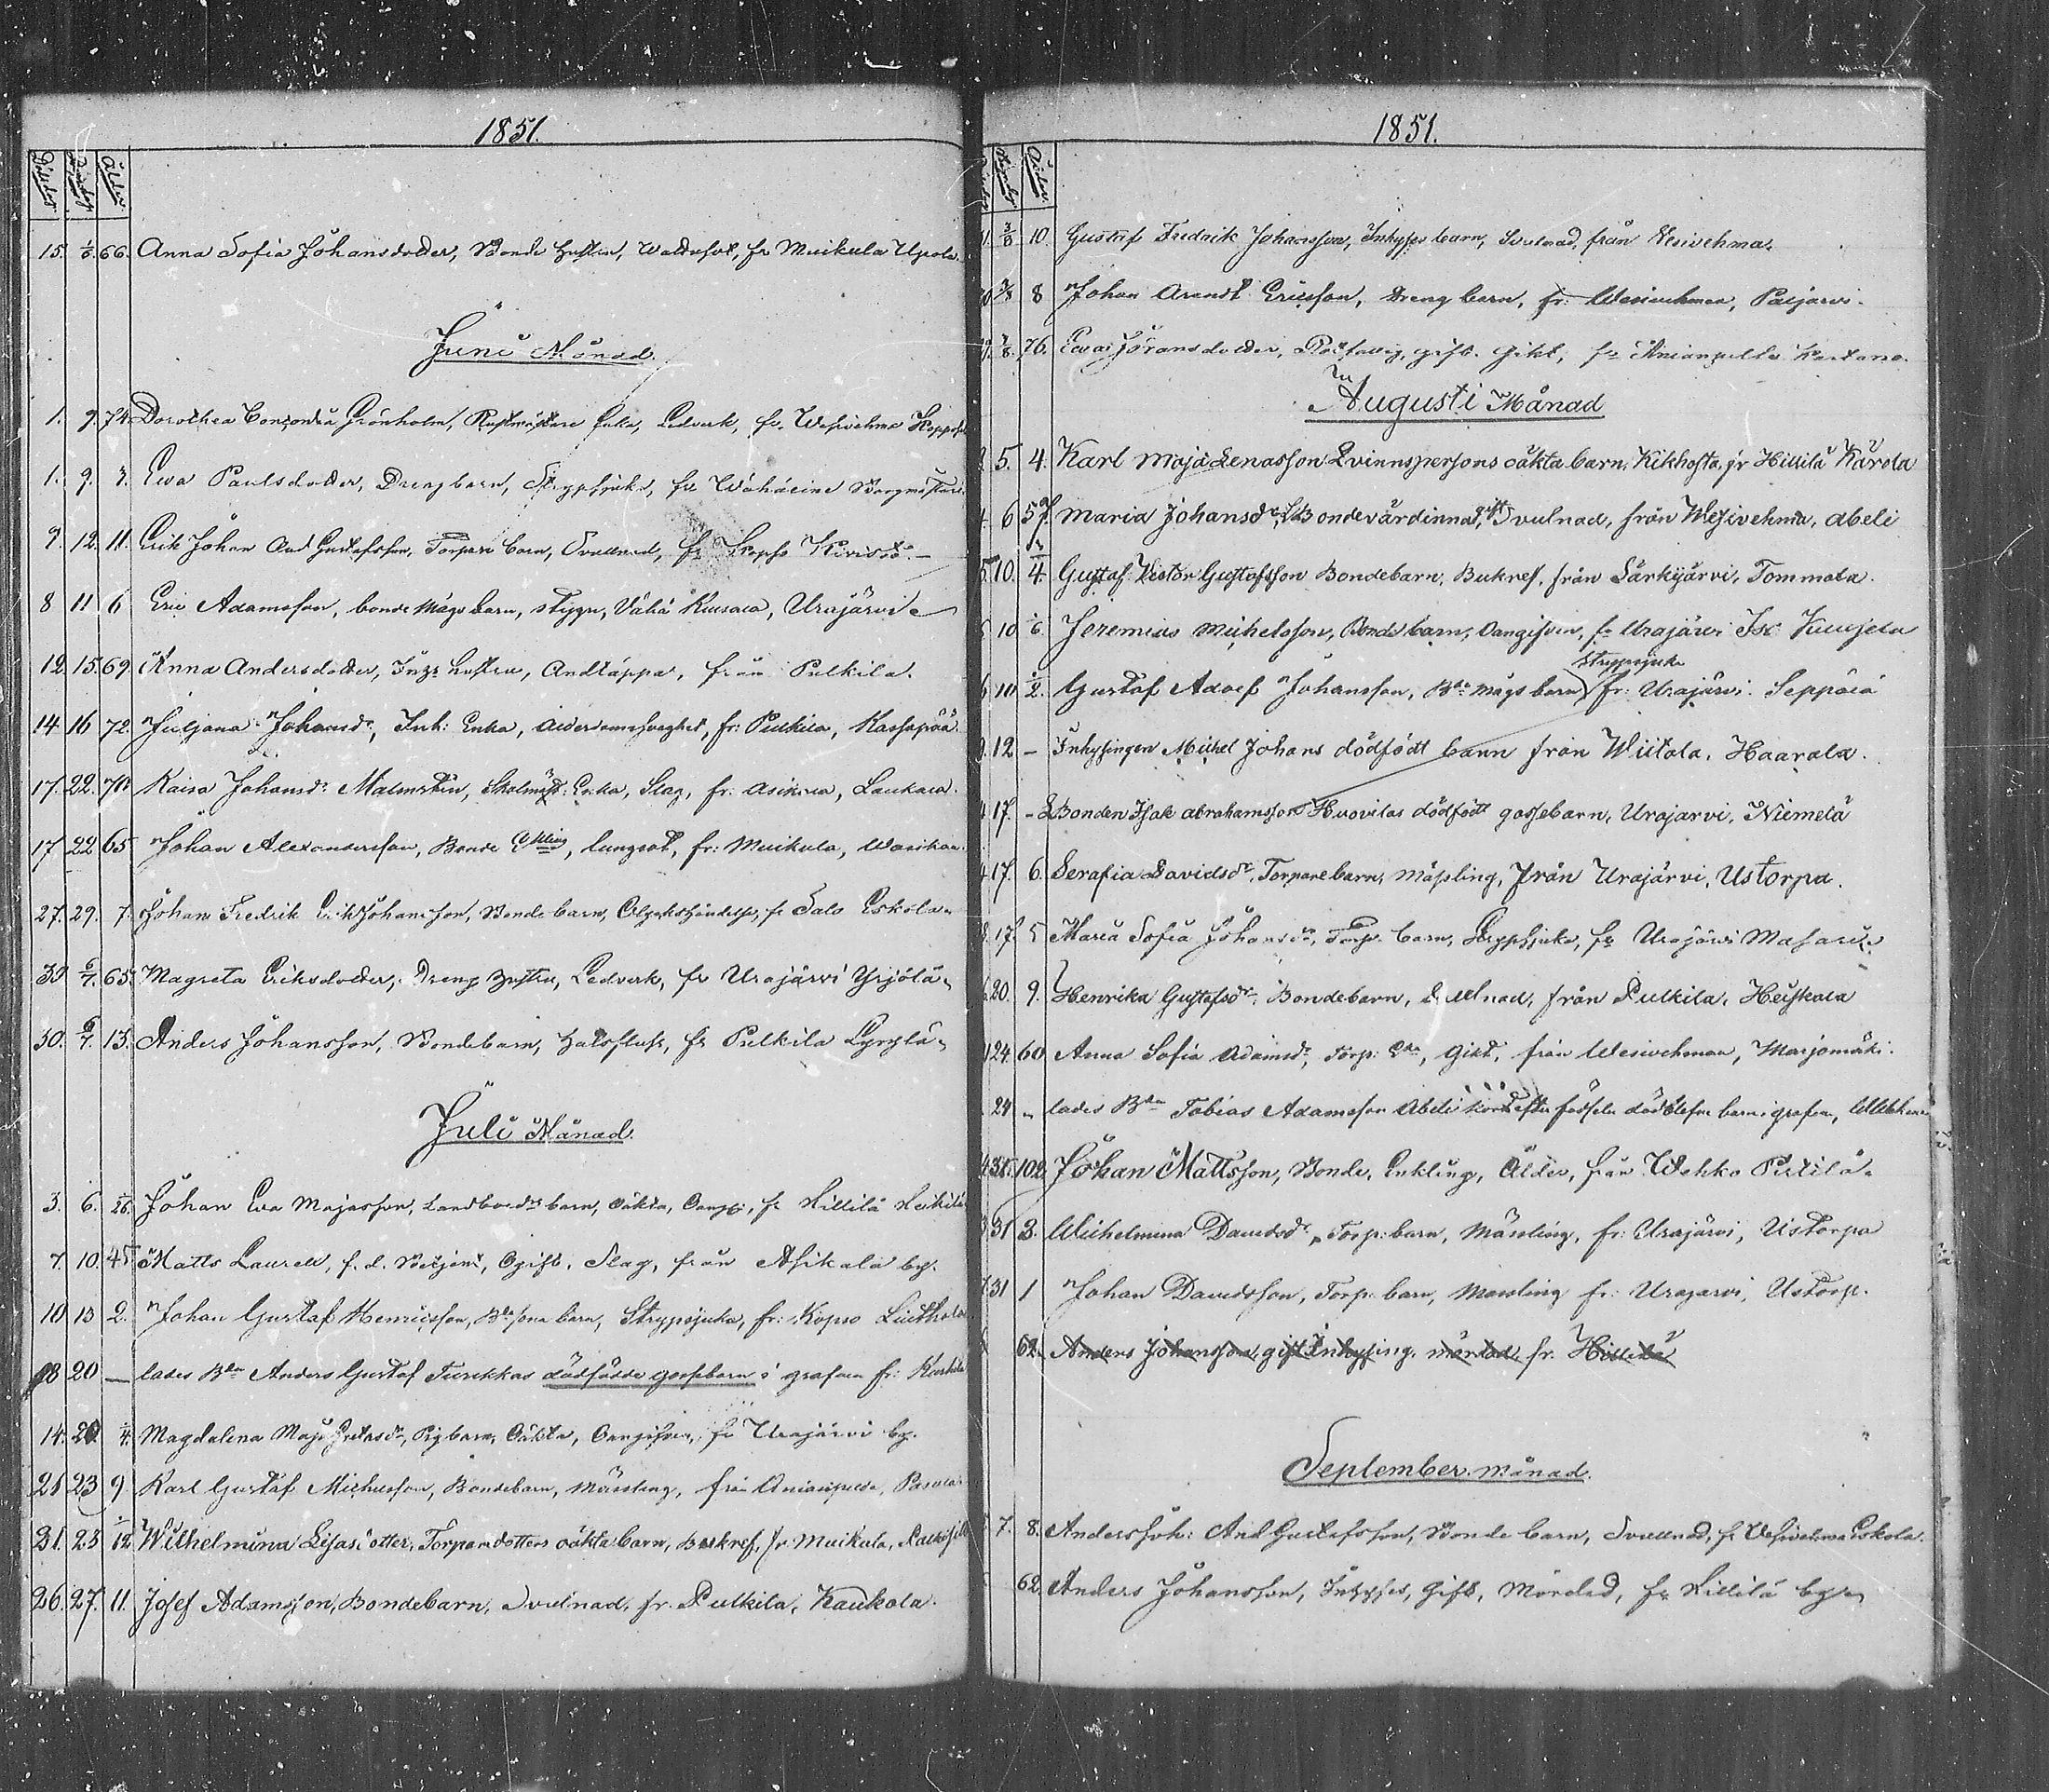 1851.
Ålder
15. 1/6 66. Anna Sofia Johansdotter, Bonde hustru, Wattusot, fr Muikula Upola.
Juni Månad.
1. 9. 74. Dorothea Concordia Grönholm, Rustmästare Enka, Ledverk, fr. Wesivehma
1. 9. 3. Ewa Paulsdotter, Drengbarn, Strypsjuka, fr Wähäeine
9. 12. 11. Erik Johan And Gustafsson, Torpare barn, Svullnad, fr Kopso Kivistö.
8 11 6 Eric Adamsson, bonde mågs barn, stygn, Vähä Kuisala, Urajärvi
12. 15. 69. Anna Andersdotter, Inhs hustru, Andtäppa, från Pulkila.
14 16 72. Juljana Johansdr, Inh: Enka, Ålderdomssvaghet, fr: Pulkila, Kassapää
17. 22. 70 Kaisa Johansdr Malmstén, Skolmäst: Enka, Slag, fr: Asikkala, Laukala.
17 22 65 Johan Alexandersson, Bonde Enkling, lungsot, fr: Muikula,
27. 29. 7. Johan Fredrik Erik Johansson, Bonde barn, Olyckshändelse, fr Salo Eskola
30 6/7. 65. Magreta Eriksdotter, Dreng hustru, Ledverk, fr Urajärvi Yrjölä
30. 6/7. 13. Anders Johansson, Bondebarn, Halsfluss, fr Pulkila Lyyslä
Juli Månad.
3. 6. Johan Ewa Majasson, Landbondes barn, Oäkta, Oangif, fr Hillilä Heikilä
7. 10. 45 Matts Laurell, f. d. Betjent, Ogift, Slag, från Asikala by.
10 13 2. Johan Gustaf Henricsson, Bde sons barn, Strypsjuka, fr: Kopso
18 20 — lades Bdn Anders Gustaf Turkkas dödfödde gossebarn i grafven fr:
14. 20. 1/4. Magdalena Maja Gretasdr, Pigbarn, Oäkta, Oangifven, fr Urajärvi by.
21 23 9. Karl Gustaf Michelsson, Bondebarn, Mässling, från Anianpelto,
21. 23 1/12 Wilhelmina Lisasdotter, Torparedotters oäkta barn, Bukref, fr Muikula,
26. 27. 11. Josef Adamsson, Bondebarn, Svulnad, fr. Pulkila, Kaukola.
1851.
Ålder
3/8 10. Gustaf Fredrik Johansson, Inhyses barn, Svulnad, från Vesivehma.
3/8 8 Johan Arendt Ericsson, Dreng barn, fr: Wesivehmaa, Paijärvi.
7/8. 76. Ewa Göransdotter, Rotfattig, gift. Gikt, fr Anianpelto Kartano.
Augusti Månad
5. 4. Karl Maja Lenasson Qvinnspersons oäkta barn, Kikhosta, fr Hillilä Kärola
6 57. Maria Johansdr, Bondevärdinna, gift Svulnad, från Wesivehma, Abeli
10. 4. Gustaf Viktor Gustafsson Bondebarn, Bukref, från Särkijärvi, Tommola.
10 1/6 Jeremias Michelsson, Bonde barn, Oangifven, fr Urajärvi Iso Kuusela
strypsjuka
10 1/2. Gustaf Adolf Johansson, Bde mågs barn fr: Urajärvi. Seppälä
12 – Inhysingen Michel Johans dödfödt barn från Wiitala, Haarala.
17. – Bonden Isak Abrahamsson Huovilas dödfödt gossebarn, Urajarvi, Niemelä
17. 6. Serafia Davidsdr, Torparebarn, Mässling, från Urajärvi, Ustorpa.
17. 5 Maria Sofia Johansdr, Torp. barn, Strypsjuka, fr Urajärvi
20. 9. Henrika Gustafsdr, Bondebarn, Svulnad, från Pulkila, Heiskala
24 60 Anna Sofia Adamsdr, Torp: Eka, Gikt, från Wesivehmaa, Marjomäki.
24 „ lades Bdn Tobias Adamsson Abelis efter födseln barn i grafven,
31. 102. Johan Mattsson, Bonde, Enkling, Ålder, från Wehko Pirtilä.
31 3. Wilhelmina Davidsdr, Torp: barn, Mässling, fr: Urajärvi, Ustorpa
31 1 Johan Davidsson, Torp: barn, Mässling fr: Urajarvi, Ustorp.
62. Anders Johansson, gift Inhysing, mördad, fr. Hillilä
September månad.
7. 8. Anders Joh: And Gustafsson, Bonde barn, Svullnad, fr Wesivehma Eskola.
62. Anders Johansson, Inhyses, Gift, Mördad, fr Hillilä by